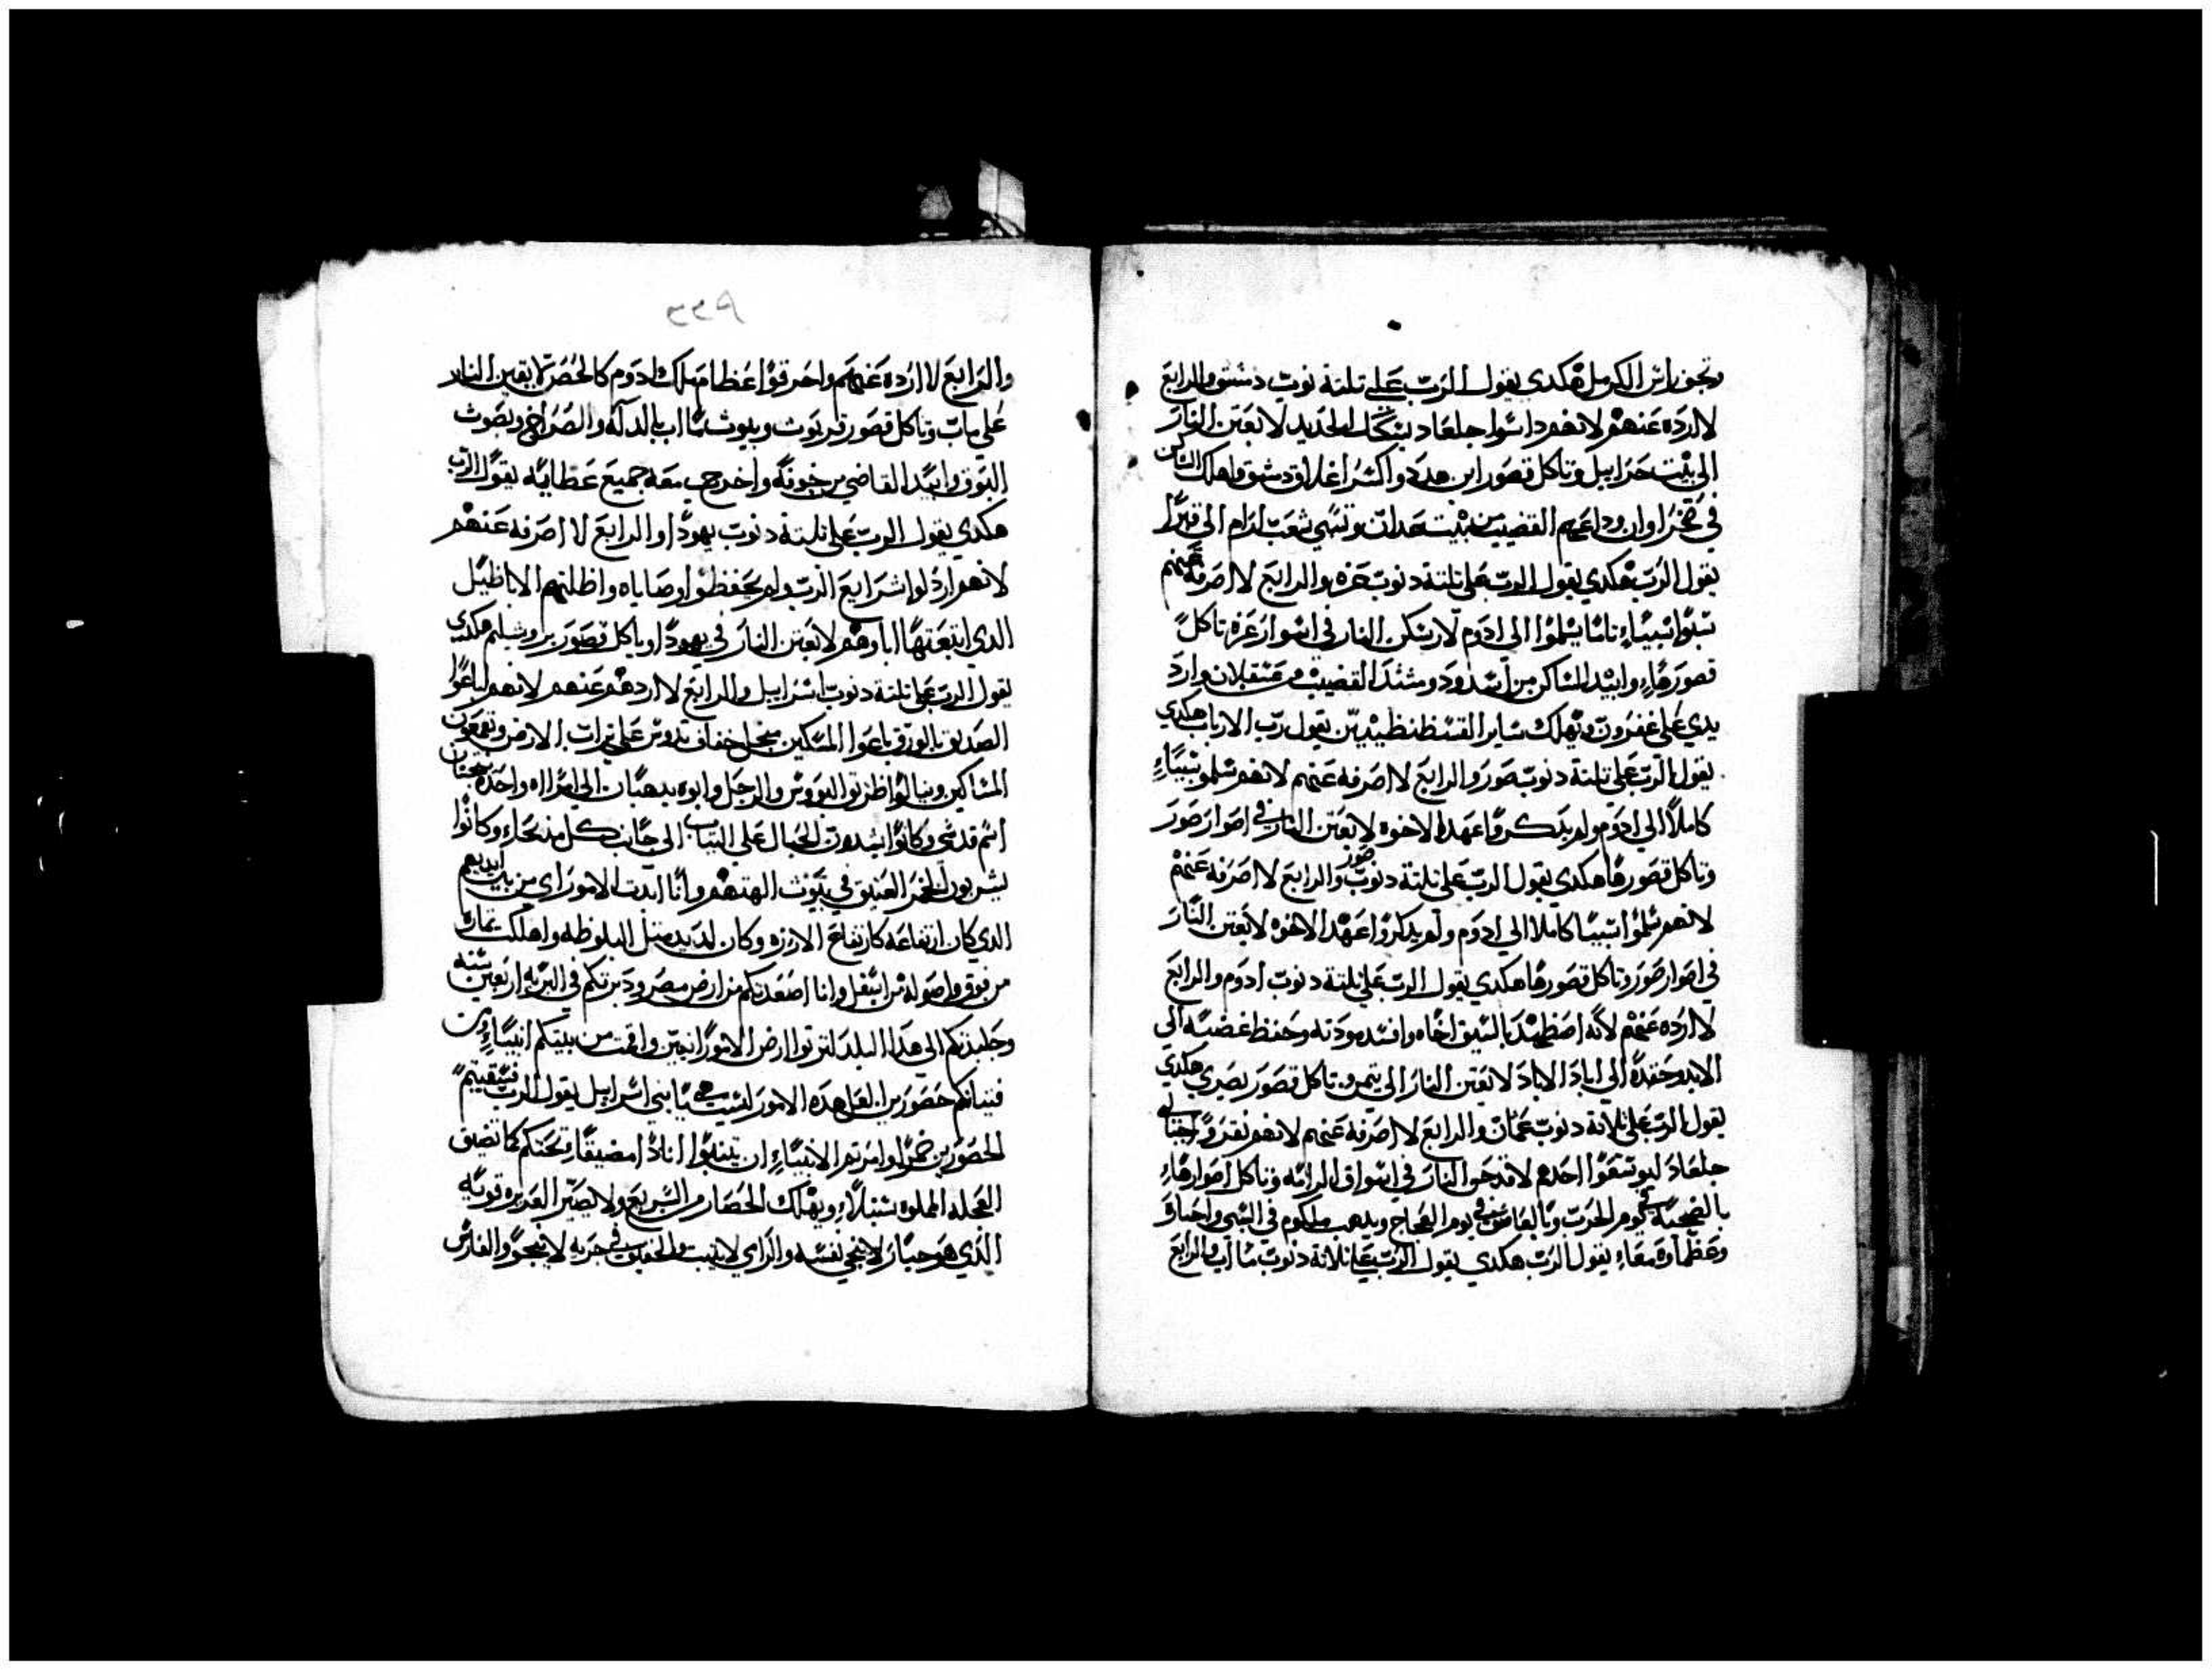 ويجف راس الكرمل هكدي يقول الرب علي تلتة دنوب دمشق والرابع
لا ارده عنهم لانهم داسوا جلعاد بسكك الحديد لابعتن النار
الي بيت حزاييل وتاكل قصور ابن هدد واكسر اغلاق دمشق واهلك الساكن
في اوان القضيب من بيت عدان وتسبي شعب ارام الي
يقول الرب هكدي يقول الرب علي تلتة دنوب غزه والرابع لا اصرفه عنهم
سبيا يسلموا الي ادوم لارسكن النار في اسوار غزه تاكل
قصورها وابيد الساكن من اسدود ومسند القضيب من عسقلان وارد
يدي علي عفرون وتهلك ساير يقول رب الارباب هكدي
يقول الرب علي تلتة دنوب صور والرابع لا اصرفه عنهم لانهم سلمو سبيا
كاملا الي ادوم ولم يدكروا عهد الاخوه لابعتن النار في اصوار صور
وتاكل قصورها هكدي يقول الرب علي تلتة دنوب صور والرابع لا اصرفه عنهم
لانهم سلموا سبيا كاملا الي ادوم ولم يدكروا عهد الاخوه لابعتن النار
في اصوار صور وتاكل قصورها هكدي يقول الرب علي تلتة دنوب ادوم والرابع
لا ارده عنهم لانه اضطهد بالسيف اخاه وافسد مودته وحفظ غضبه الي
الابد وحقده الي اباد الاباد لابعتن النار الي تيمن وتاكل قصور بصري هكدي
يقول الرب علي تلاتة دنوب عمان والرابع لا اصرفه عنهم لانهم بقروا
جلعاد ليوسعوا لاقدحن النار في اسواق الرابه وتاكل اصوارها
بالضجيه في يوم الحرب يوم العجاج ويدهب ملكوم في السبي واحباره
وعظماوه معا يقول الرب هكدي يقول الرب علي تلاتة دنوب ماب والرابع
والرابع لا ارده عنهم واحرقوا عظام ملك ادوم كالحصر لابعتن النار
علي ماب وتاكل قصور قريوت ويموت ماب والصراخ وبصوت
البوق وابيد القاضي من جوفه واخرج معه جميع عظايه يقول الرب
هكدي يقول الرب علي تلتة دنوب يهودا والرابع لا اصرفه عنهم
لانهم اردلوا شرايع الرب ولم يحفظوا وصاياه واظلتهم الاباظيل
الدي ابتعتها اباوهم لابعتن النار في يهودا وياكل قصور يروشليم هكدي
يقول الرب علي تلتة دنوب اسراييل والرابع لا اردهم عنهم لانهم باعوا
الصديق بالورق باعوا المسكين خفاف تدوس علي تراب الارض
المساكين والرجل وابوه يدهبان الي امراه واحده
اسم قدسي وكانوا يشدون الحبال علي التياب الي جانب كل مدبحا وكانوا
يشربون الخمر العتيق في بيوت الهتهم وانا ابدت الاموراي من بين ايديهم
الدي كان ارتفاعه كارتفاع الارزه وكان متل البلوطه واهلكت تماره
من فوق واصوله من اسفل وانا اصعدتكم من ارض مصر ودبرتكم في البريه اربعين سنه
وجلبتكم الي هدا البلد لترتوا ارض الاموراانيين واقمت من بنيكم انبيا ومن
فتيانكم لعل هده الامور ليست هي يا بني اسراييل يقول الرب فسقيتم
خمرا وامرتم الانبيا ان تتنبوا انا دا مضيقا تحتكم كما تضيق
العجله المملوه سنبلا ويهلك الحصار من السريع ولا يصير العزيز قوته
الدي هو جبار لا ينجي نفسه والرامي لا يتبت والخفيف في جريه لا ينجوا والفارس